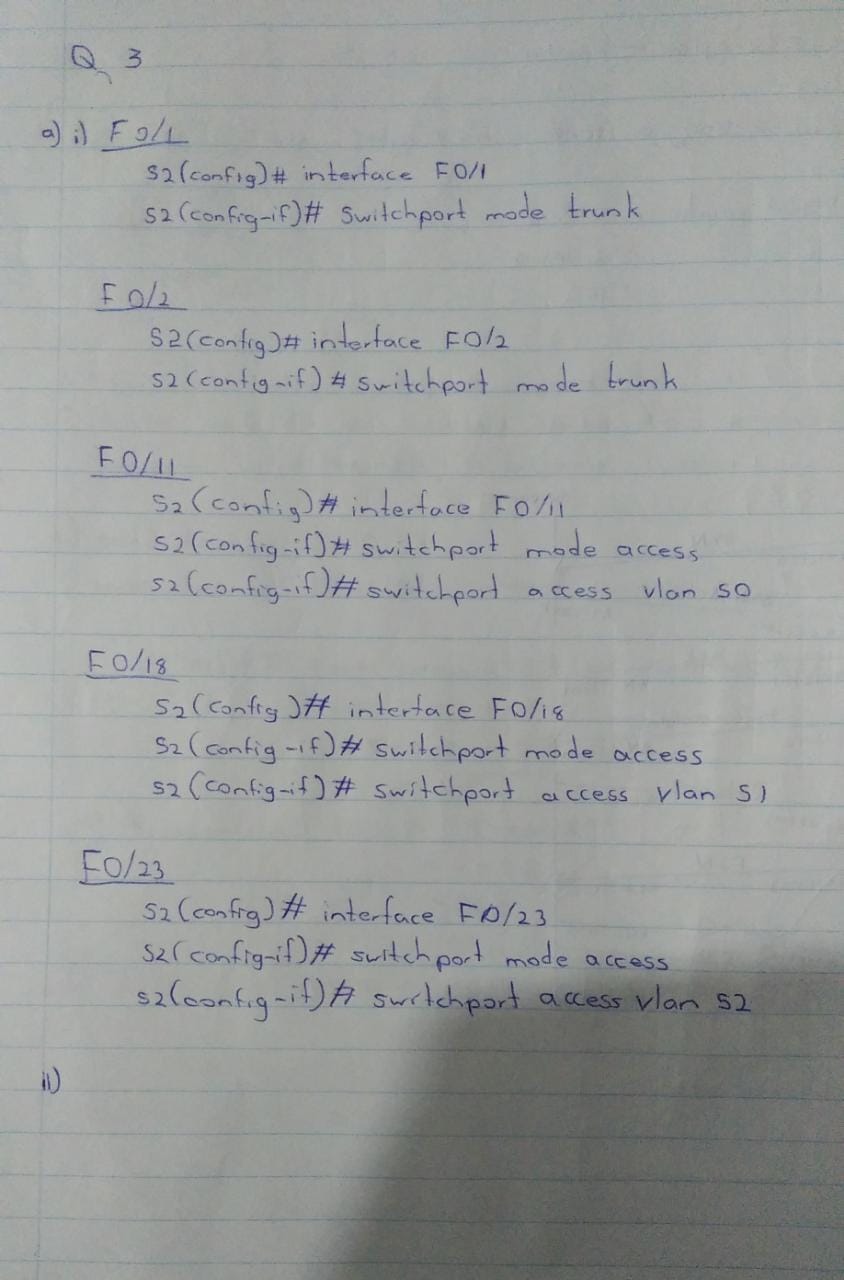 Q 3
a) i) F 0/1
S2(config)# interface F0/1
S2(config-if)# switchport mode trunk
F 0/2
S2(config)# interface F0/2
S2(config-if)# switchport mode trunk
F0/11
S2(config)# interface F0/11
S2(config-if)# switchport mode access
S2(config-if)# switchport access vlan 50
F0/18
S2(config)# interface F0/18
S2(config-if)# switchport mode access
S2(config-if)# switchport access vlan 51
F0/23
S2(config)# interface F0/23
S2(config-if)# switchport mode access
S2(config-if)# switchport access vlan 52
ii)